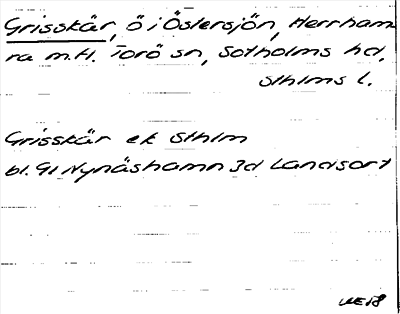 Grisskär, ö i Östersjön, Herrham
ra m.fl. Torö sn, Sotholms hd,
Sthlms l.
Grisskär ek Sthlm
bl. 91 Nynäshamn 3d Landsort